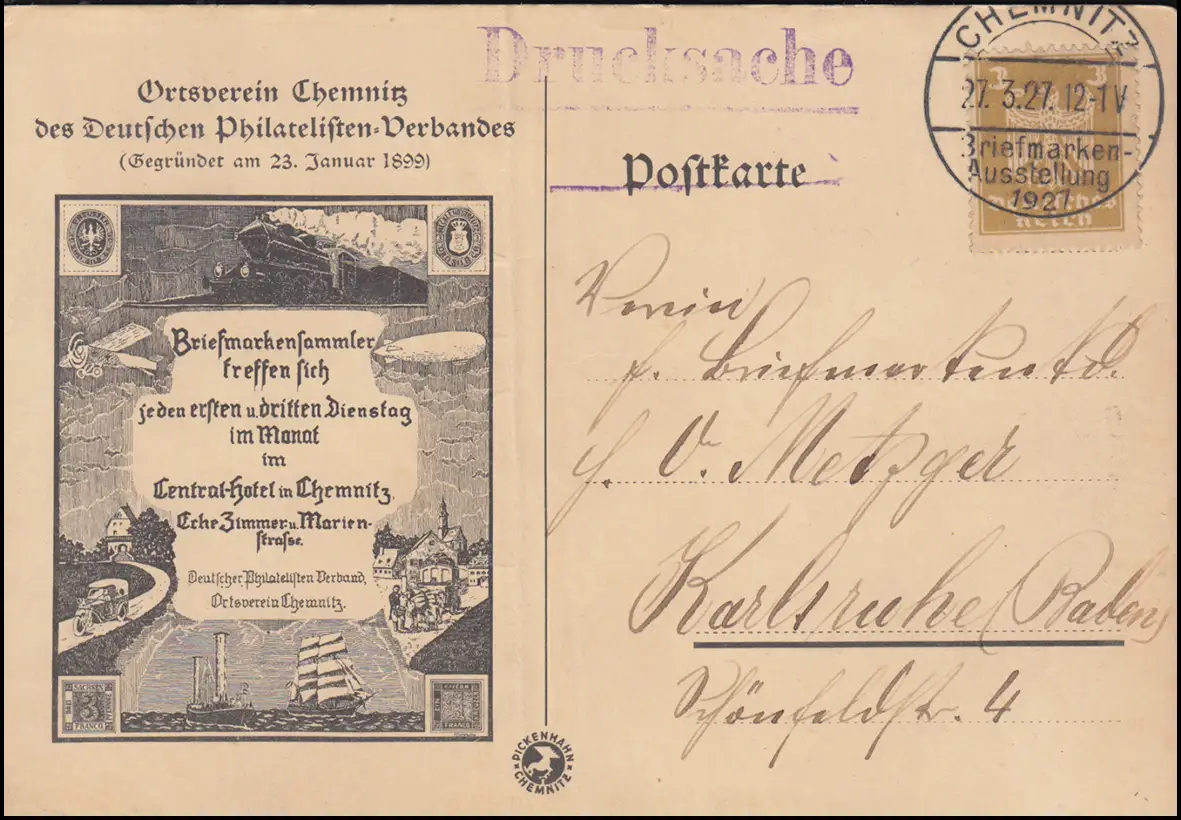 Ortsverein Chemnitz
des Deutschen Philatelisten-Verbandes
(Gegründet am 23. Januar 1899)
Briefmarkensammler
treffen sich
jeden ersten u. dritten Dienstag
im Monat
im
Central-Hotel in Chemnitz,
Ecke Zimmer- u. Marien-
strasse.
Deutscher Philatelisten Verband,
Ortsverein Chemnitz.
SACHSEN
3
FRANCO
BAYERN
FRANCO
PICKENHAHN
CHEMNITZ
Drucksache
Postkarte
CHEMNITZ
27.3.27.12-1V
Briefmarken-
Ausstellung
1927
3 3
Deutsches
Reich
Verein
f. Briefmarkenkd.
O. Metzger
Karlsruhe (Baden)
Schönfeldstr. 4